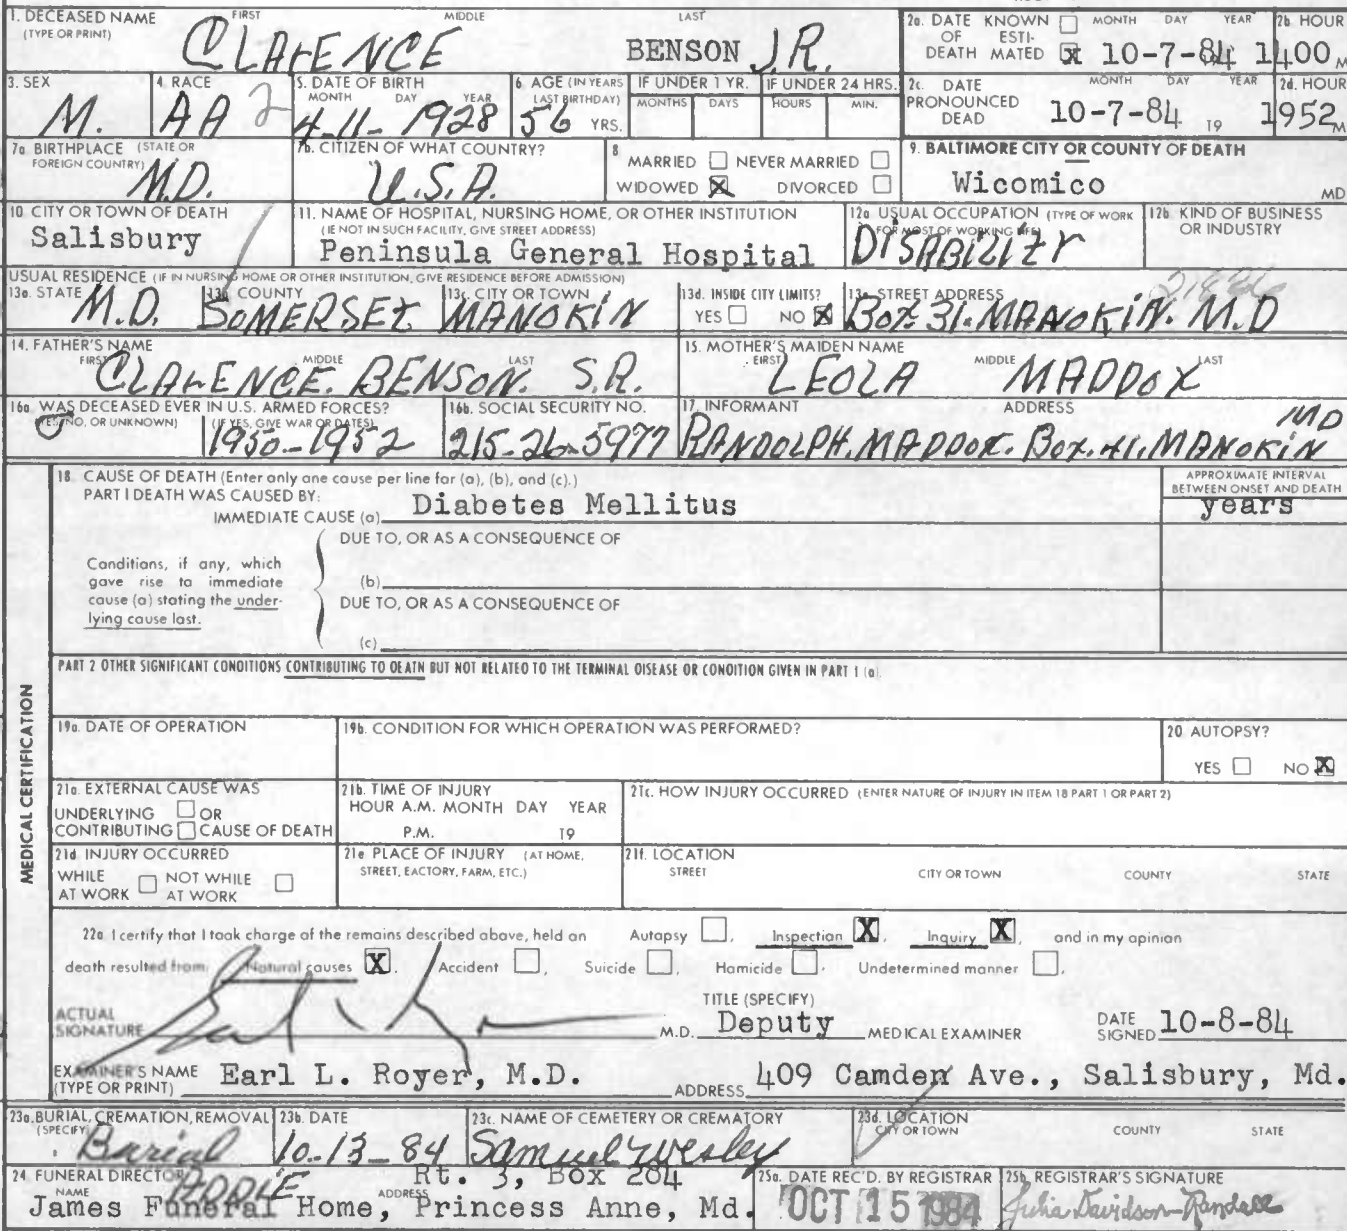 1. DECEASED NAME FIRST MIDDLE LAST
(TYPE OR PRINT) CLARENCE BENSON J.R.
2a. DATE KNOWN ☐ MONTH DAY YEAR 2b. HOUR
OF ESTI-
DEATH MATED ☒ 10-7-84 1400 M
3. SEX M.
4. RACE AA 2
5. DATE OF BIRTH
MONTH DAY YEAR
4-11-1928
6. AGE (IN YEARS
LAST BIRTHDAY)
56 YRS.
IF UNDER 1 YR. IF UNDER 24 HRS.
MONTHS DAYS HOURS MIN.
2c. DATE MONTH DAY YEAR 2d. HOUR
PRONOUNCED
DEAD 10-7-84 19 1952 M
7a. BIRTHPLACE (STATE OR
FOREIGN COUNTRY)
M.D.
7b. CITIZEN OF WHAT COUNTRY?
U.S.A.
8. MARRIED ☐ NEVER MARRIED ☐
WIDOWED ☒ DIVORCED ☐
9. BALTIMORE CITY OR COUNTY OF DEATH
Wicomico MD
10. CITY OR TOWN OF DEATH
Salisbury
11. NAME OF HOSPITAL, NURSING HOME, OR OTHER INSTITUTION
(IF NOT IN SUCH FACILITY, GIVE STREET ADDRESS)
Peninsula General Hospital
12a. USUAL OCCUPATION (TYPE OF WORK
FOR MOST OF WORKING LIFE)
DISABILITY
12b. KIND OF BUSINESS
OR INDUSTRY
USUAL RESIDENCE (IF IN NURSING HOME OR OTHER INSTITUTION, GIVE RESIDENCE BEFORE ADMISSION)
13a. STATE M.D.
13b. COUNTY SOMERSET
13c. CITY OR TOWN MANOKIN
13d. INSIDE CITY LIMITS?
YES ☐ NO ☒
13e. STREET ADDRESS
BOX 31. MANOKIN. M.D
14. FATHER'S NAME
FIRST MIDDLE LAST
CLARENCE. BENSON. S.R.
15. MOTHER'S MAIDEN NAME
FIRST MIDDLE LAST
LEOLA MADDOX
16a. WAS DECEASED EVER IN U.S. ARMED FORCES?
(YES, NO, OR UNKNOWN) (IF YES, GIVE WAR OR DATES)
1950-1952
16b. SOCIAL SECURITY NO.
215-26-5977
17. INFORMANT ADDRESS
RANDOLPH. MADDOX. Box. 41. MANOKIN MD
18. CAUSE OF DEATH (Enter only one cause per line for (a), (b), and (c).)
PART I DEATH WAS CAUSED BY:
IMMEDIATE CAUSE (a) Diabetes Mellitus
APPROXIMATE INTERVAL
BETWEEN ONSET AND DEATH
years
DUE TO, OR AS A CONSEQUENCE OF
Conditions, if any, which
gave rise to immediate
cause (a) stating the under-
lying cause last.
(b)
DUE TO, OR AS A CONSEQUENCE OF
(c)
PART 2 OTHER SIGNIFICANT CONDITIONS CONTRIBUTING TO DEATH BUT NOT RELATED TO THE TERMINAL DISEASE OR CONDITION GIVEN IN PART 1 (a).
MEDICAL CERTIFICATION
19a. DATE OF OPERATION
19b. CONDITION FOR WHICH OPERATION WAS PERFORMED?
20. AUTOPSY?
YES ☐ NO ☒
21a. EXTERNAL CAUSE WAS
UNDERLYING ☐ OR
CONTRIBUTING ☐ CAUSE OF DEATH
21b. TIME OF INJURY
HOUR A.M. MONTH DAY YEAR
P.M. 19
21c. HOW INJURY OCCURRED (ENTER NATURE OF INJURY IN ITEM 18 PART 1 OR PART 2)
21d. INJURY OCCURRED
WHILE ☐ NOT WHILE ☐
AT WORK AT WORK
21e. PLACE OF INJURY (AT HOME,
STREET, FACTORY, FARM, ETC.)
21f. LOCATION
STREET CITY OR TOWN COUNTY STATE
22a. I certify that I took charge of the remains described above, held an Autopsy ☐, Inspection ☒, Inquiry ☒, and in my opinion
death resulted from: Natural causes ☒. Accident ☐, Suicide ☐, Homicide ☐. Undetermined manner ☐.
ACTUAL
SIGNATURE M.D.
TITLE (SPECIFY)
Deputy MEDICAL EXAMINER
DATE
SIGNED 10-8-84
EXAMINER'S NAME
(TYPE OR PRINT) Earl L. Royer, M.D.
ADDRESS 409 Camden Ave., Salisbury, Md.
23a. BURIAL, CREMATION, REMOVAL
(SPECIFY) Burial
23b. DATE
10-13-84
23c. NAME OF CEMETERY OR CREMATORY
Samuel Wesley
23d. LOCATION
CITY OR TOWN COUNTY STATE
24. FUNERAL DIRECTOR
NAME ADDRESS
Rt. 3, Box 204
James Funeral Home, Princess Anne, Md.
25a. DATE REC'D. BY REGISTRAR
OCT 15 1984
25b. REGISTRAR'S SIGNATURE
Julia Davidson-Randall